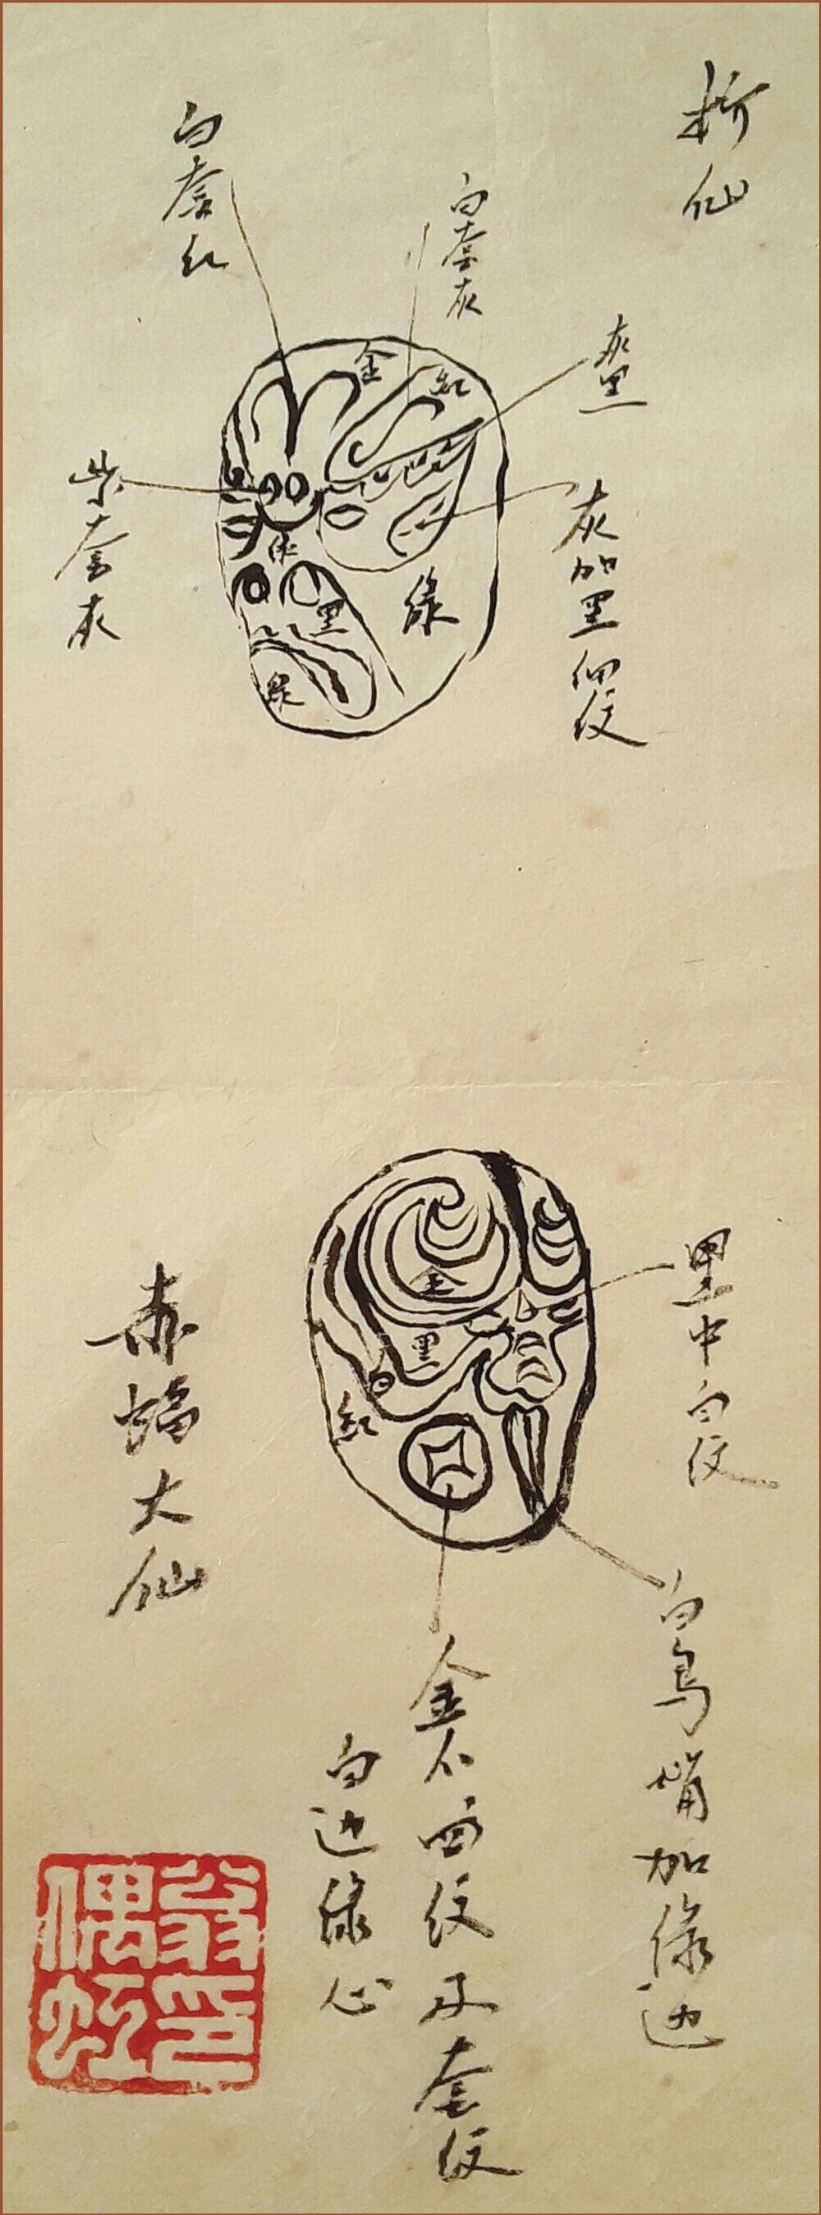 柳仙
白套灰
白套红
灰黑
灰加黑细纹
紫套灰
金
红
绿
黑
绿
赤蝠大仙
黑中白纹
白鸟嘴加绿边
金石面纹及套纹
白边绿心
金
黑
红
翁偶虹印